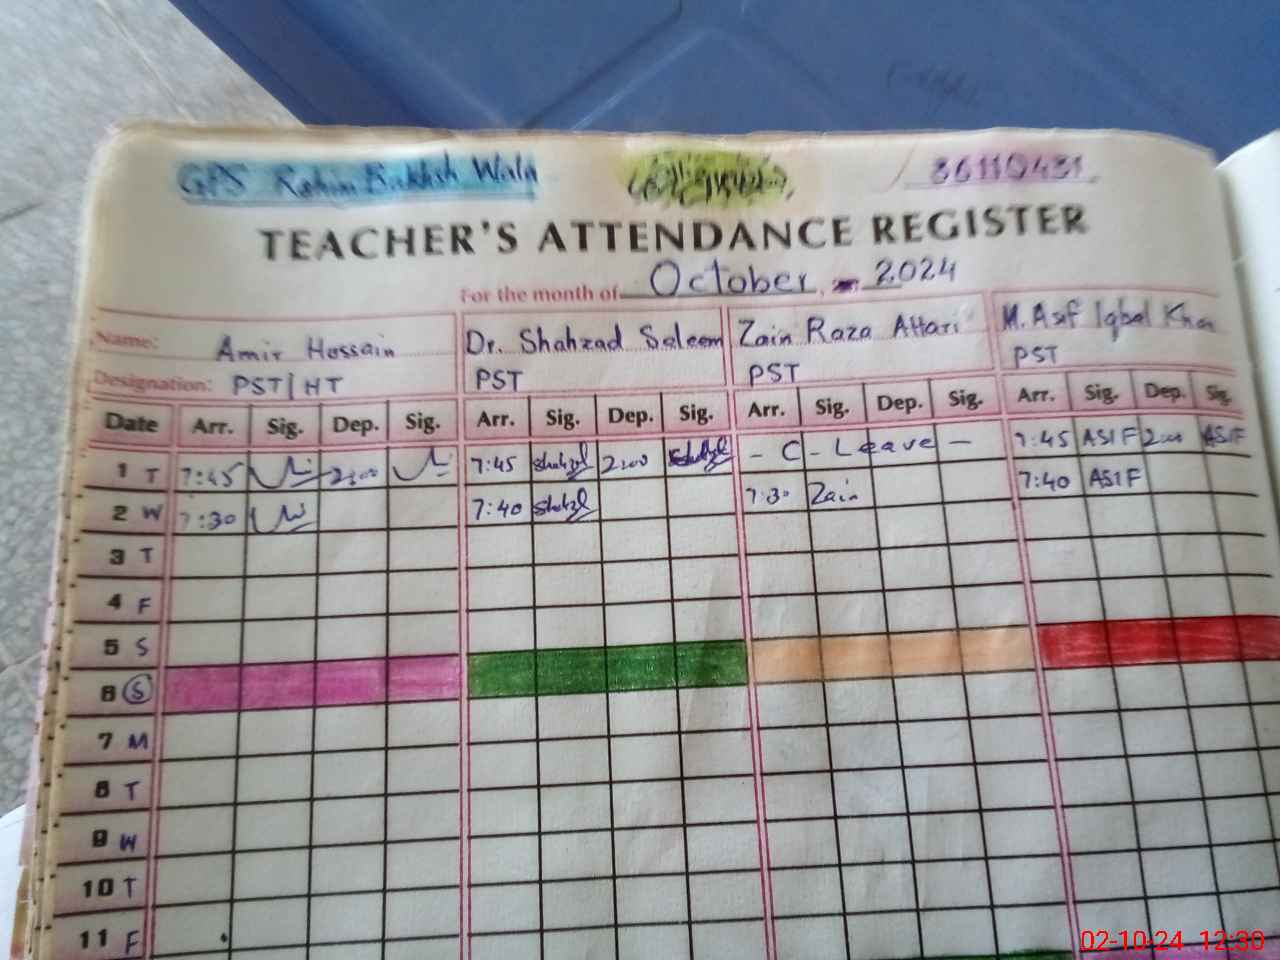 GPS Rahim Bukhsh Wala 36110431
TEACHER'S ATTENDANCE REGISTER
For the month of October, 2024
Name: Amir Hussain Dr. Shahzad Saleem Zain Raza Attari M. Asif Iqbal Khan
Designation: PST/HT PST PST PST
Date Arr. Sig. Dep. Sig. Arr. Sig. Dep. Sig. Arr. Sig. Dep. Sig. Arr. Sig. Dep. Sig.
1 T 7:45 2:00 7:45 Shahzd 2:00 Shahzd - C - Leave - 7:45 ASIF 2:00 ASIF
2 W 7:30 7:40 Shahzd 7:30 Zain 7:40 ASIF
3 T
4 F
5 S
6 S
7 M
8 T
9 W
10 T
11 F
02-10-24 12:30